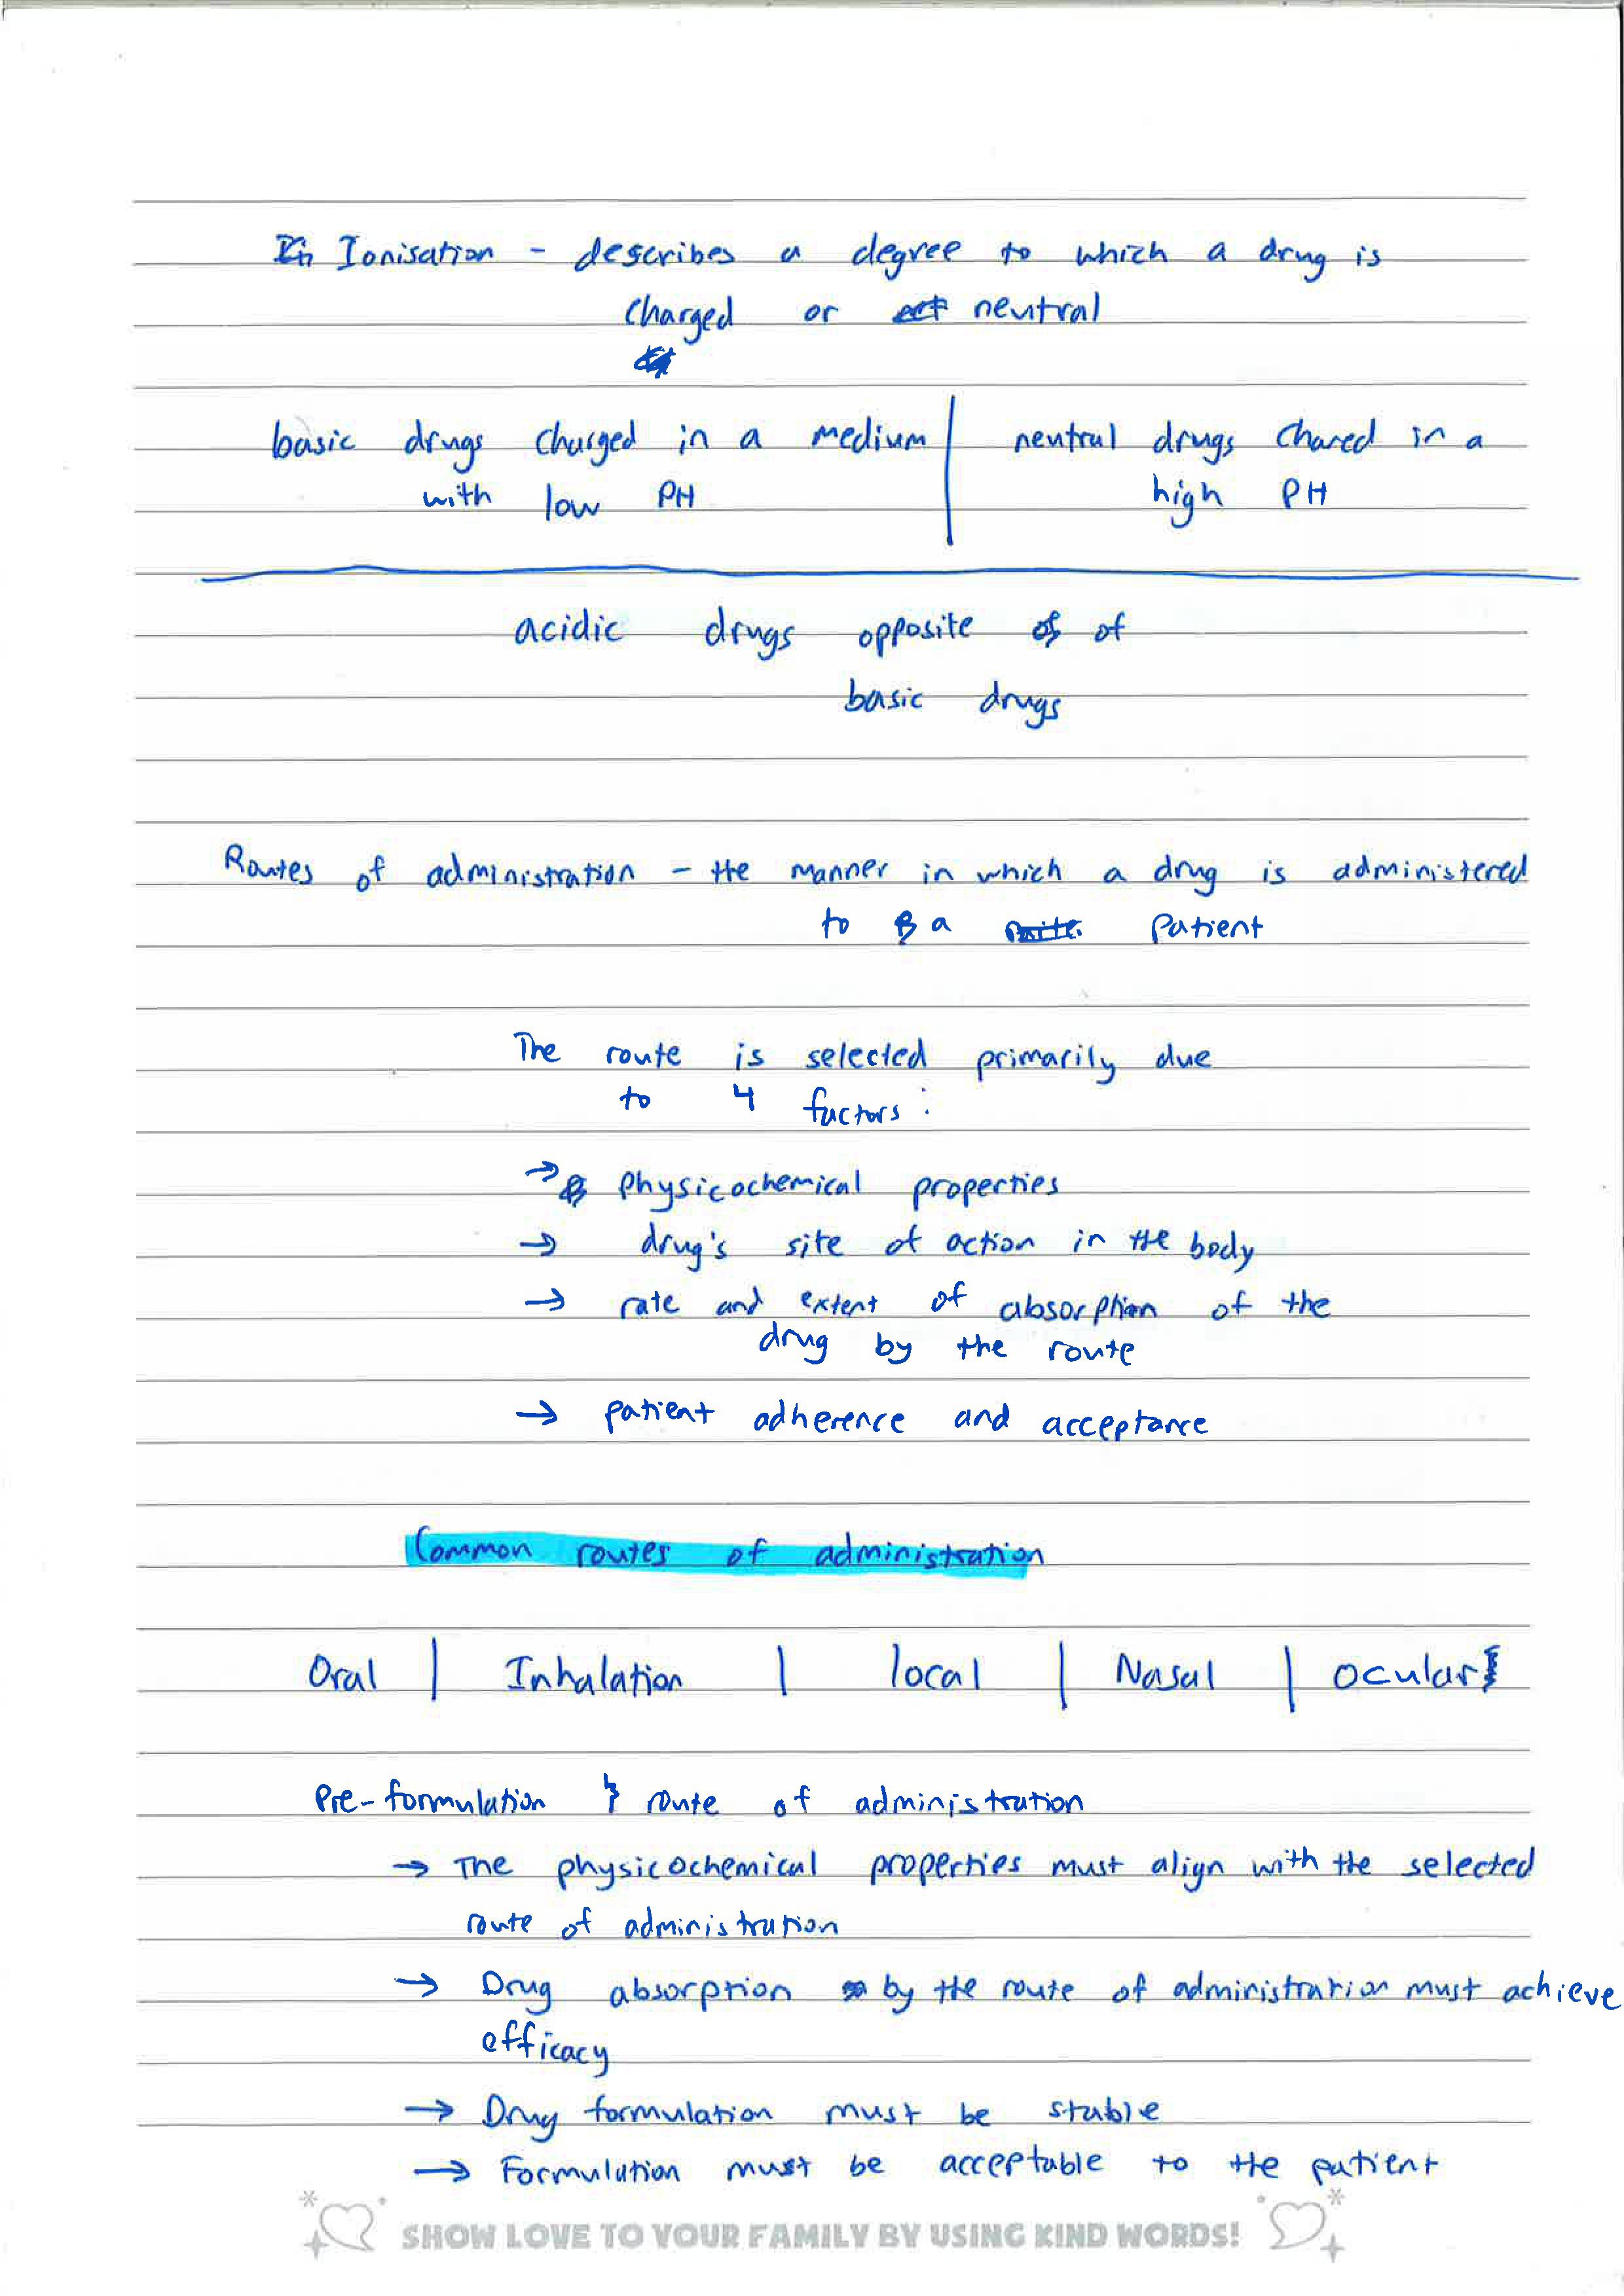 Ionisation - describes a degree to which a drug is
charged or neutral
basic drugs charged in a medium | neutral drugs chared in a
with low PH | high PH
acidic drugs opposite of
basic drugs
Routes of administration - the manner in which a drug is administered
to a patient
The route is selected primarily due
to 4 factors:
→ Physicochemical properties
→ drug's site of action in the body
→ rate and extent of absorption of the
drug by the route
→ patient adherence and acceptance
Common routes of administration
Oral | Inhalation | local | Nasal | ocular
Pre-formulation & route of administration
→ The physicochemical properties must align with the selected
route of administration
→ Drug absorption by the route of administration must achieve
efficacy
→ Drug formulation must be stable
→ Formulation must be acceptable to the patient
SHOW LOVE TO YOUR FAMILY BY USING KIND WORDS!